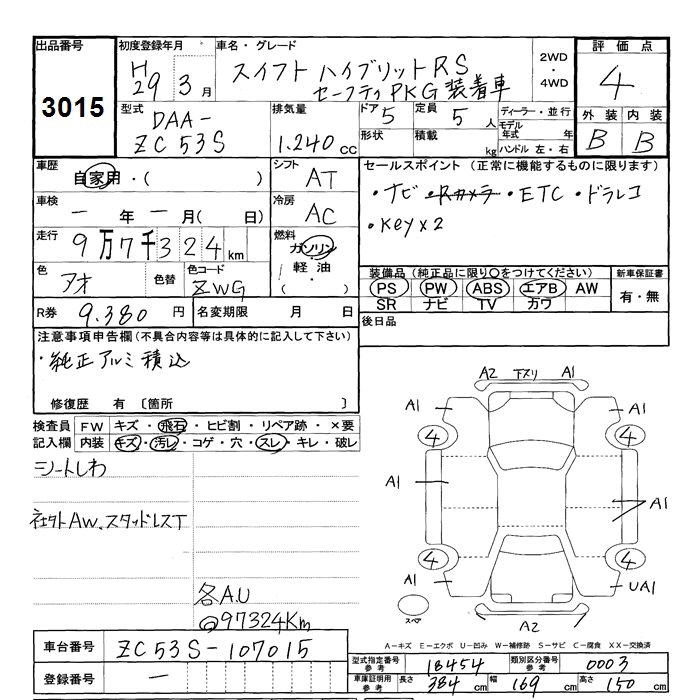 出品番号
3015
初度登録年月
H
29 3 月
車名・グレード
スイフト ハイブリットRS
セーフティPKG装着車
2WD
・
4WD
評価点
4
型式
DAA-
ZC53S
排気量
1.240 cc
ドア 5
定員 5 人
形状
積載 kg
ディーラー・並行
モデル
年式 年
ハンドル 左・右
外装 内装
B B
車歴
自家用・( )
シフト
AT
セールスポイント (正常に機能するものに限ります)
・ナビ ・Rカメラ ・ETC ・ドラレコ
・Key×2
車検
一 年 一 月( 日)
冷房
AC
走行
9万7千324 km
燃料
ガソリン
・
軽油
色
アオ
色替
色コード
ZWG
装備品 (純正品に限り○をつけてください)
PS PW ABS エアB AW
SR ナビ TV カワ
新車保証書
有・無
R券 9.380 円
名変期限 月 日
後日品
注意事項申告欄 (不具合内容等は具体的に記入して下さい)
・純正アルミ積込
修復歴 有 〔箇所 〕
検査員
記入欄
FW キズ・飛石・ヒビ割・リペア跡・×要
内装 キズ・汚レ・コゲ・穴・スレ・キレ・破レ
シートしわ
社外AW、スタッドレスT
各A.U
@97324Km
A2 下スリ A1
A1 A1
4 4
A1 A1
4 4
A1 UA1
スペア
A2
A-キズ E-エクボ U-凹み W-補修跡 S-サビ C-腐食 XX-交換済
車台番号 ZC53S-107015
登録番号 一
型式指定番号
参考
18454
類別区分番号
参考
0003
車庫証明用
参考
長さ 384 cm 幅 169 cm 高さ 150 cm